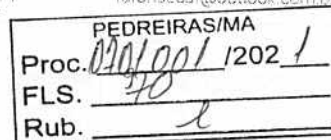 PEDREIRAS/MA
Proc. 070/001 /2021
FLS. 70
Rub.